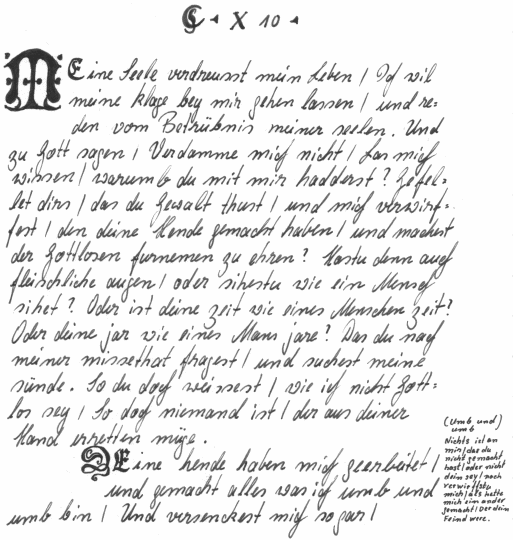 C ◂ X 10 ◂
MEine Seele verdreusst mein Leben / Ich wil
meine klage bey mir gehen lassen / und re=
den vom Betrübnis meiner seelen. Und
zu Gott sagen / Verdamme mich nicht / Las mich
wissen / warumb du mit mir hadderst? Gefel=
let dirs / das du Gewalt thust / und mich verwirf=
fest / den deine Hende gemacht haben / und machest
der Gottlosen furnemen zu ehren? Hastu denn auch
fleischliche augen / oder sihestu wie ein Mensch
sihet? Oder ist deine zeit wie eines Menschen zeit?
Oder deine jar wie eines Mans jare? Das du nach
meiner missethat fragest / und suchest meine
sünde. So du doch weissest / wie ich nicht Gott=
los sey / So doch niemand ist / der aus deiner
Hand erretten müge.
DEine hende haben mich geerbeitet /
und gemacht alles was ich umb und
umb bin / Und versenckest mich so gar /
(Umb und)
umb
Nichts ist an
mir / das du
nicht gemacht
hast / oder nicht
dein sey / noch
verwirffstu
mich / als hette
mich ein ander
gemacht / Der dein
Feind were.